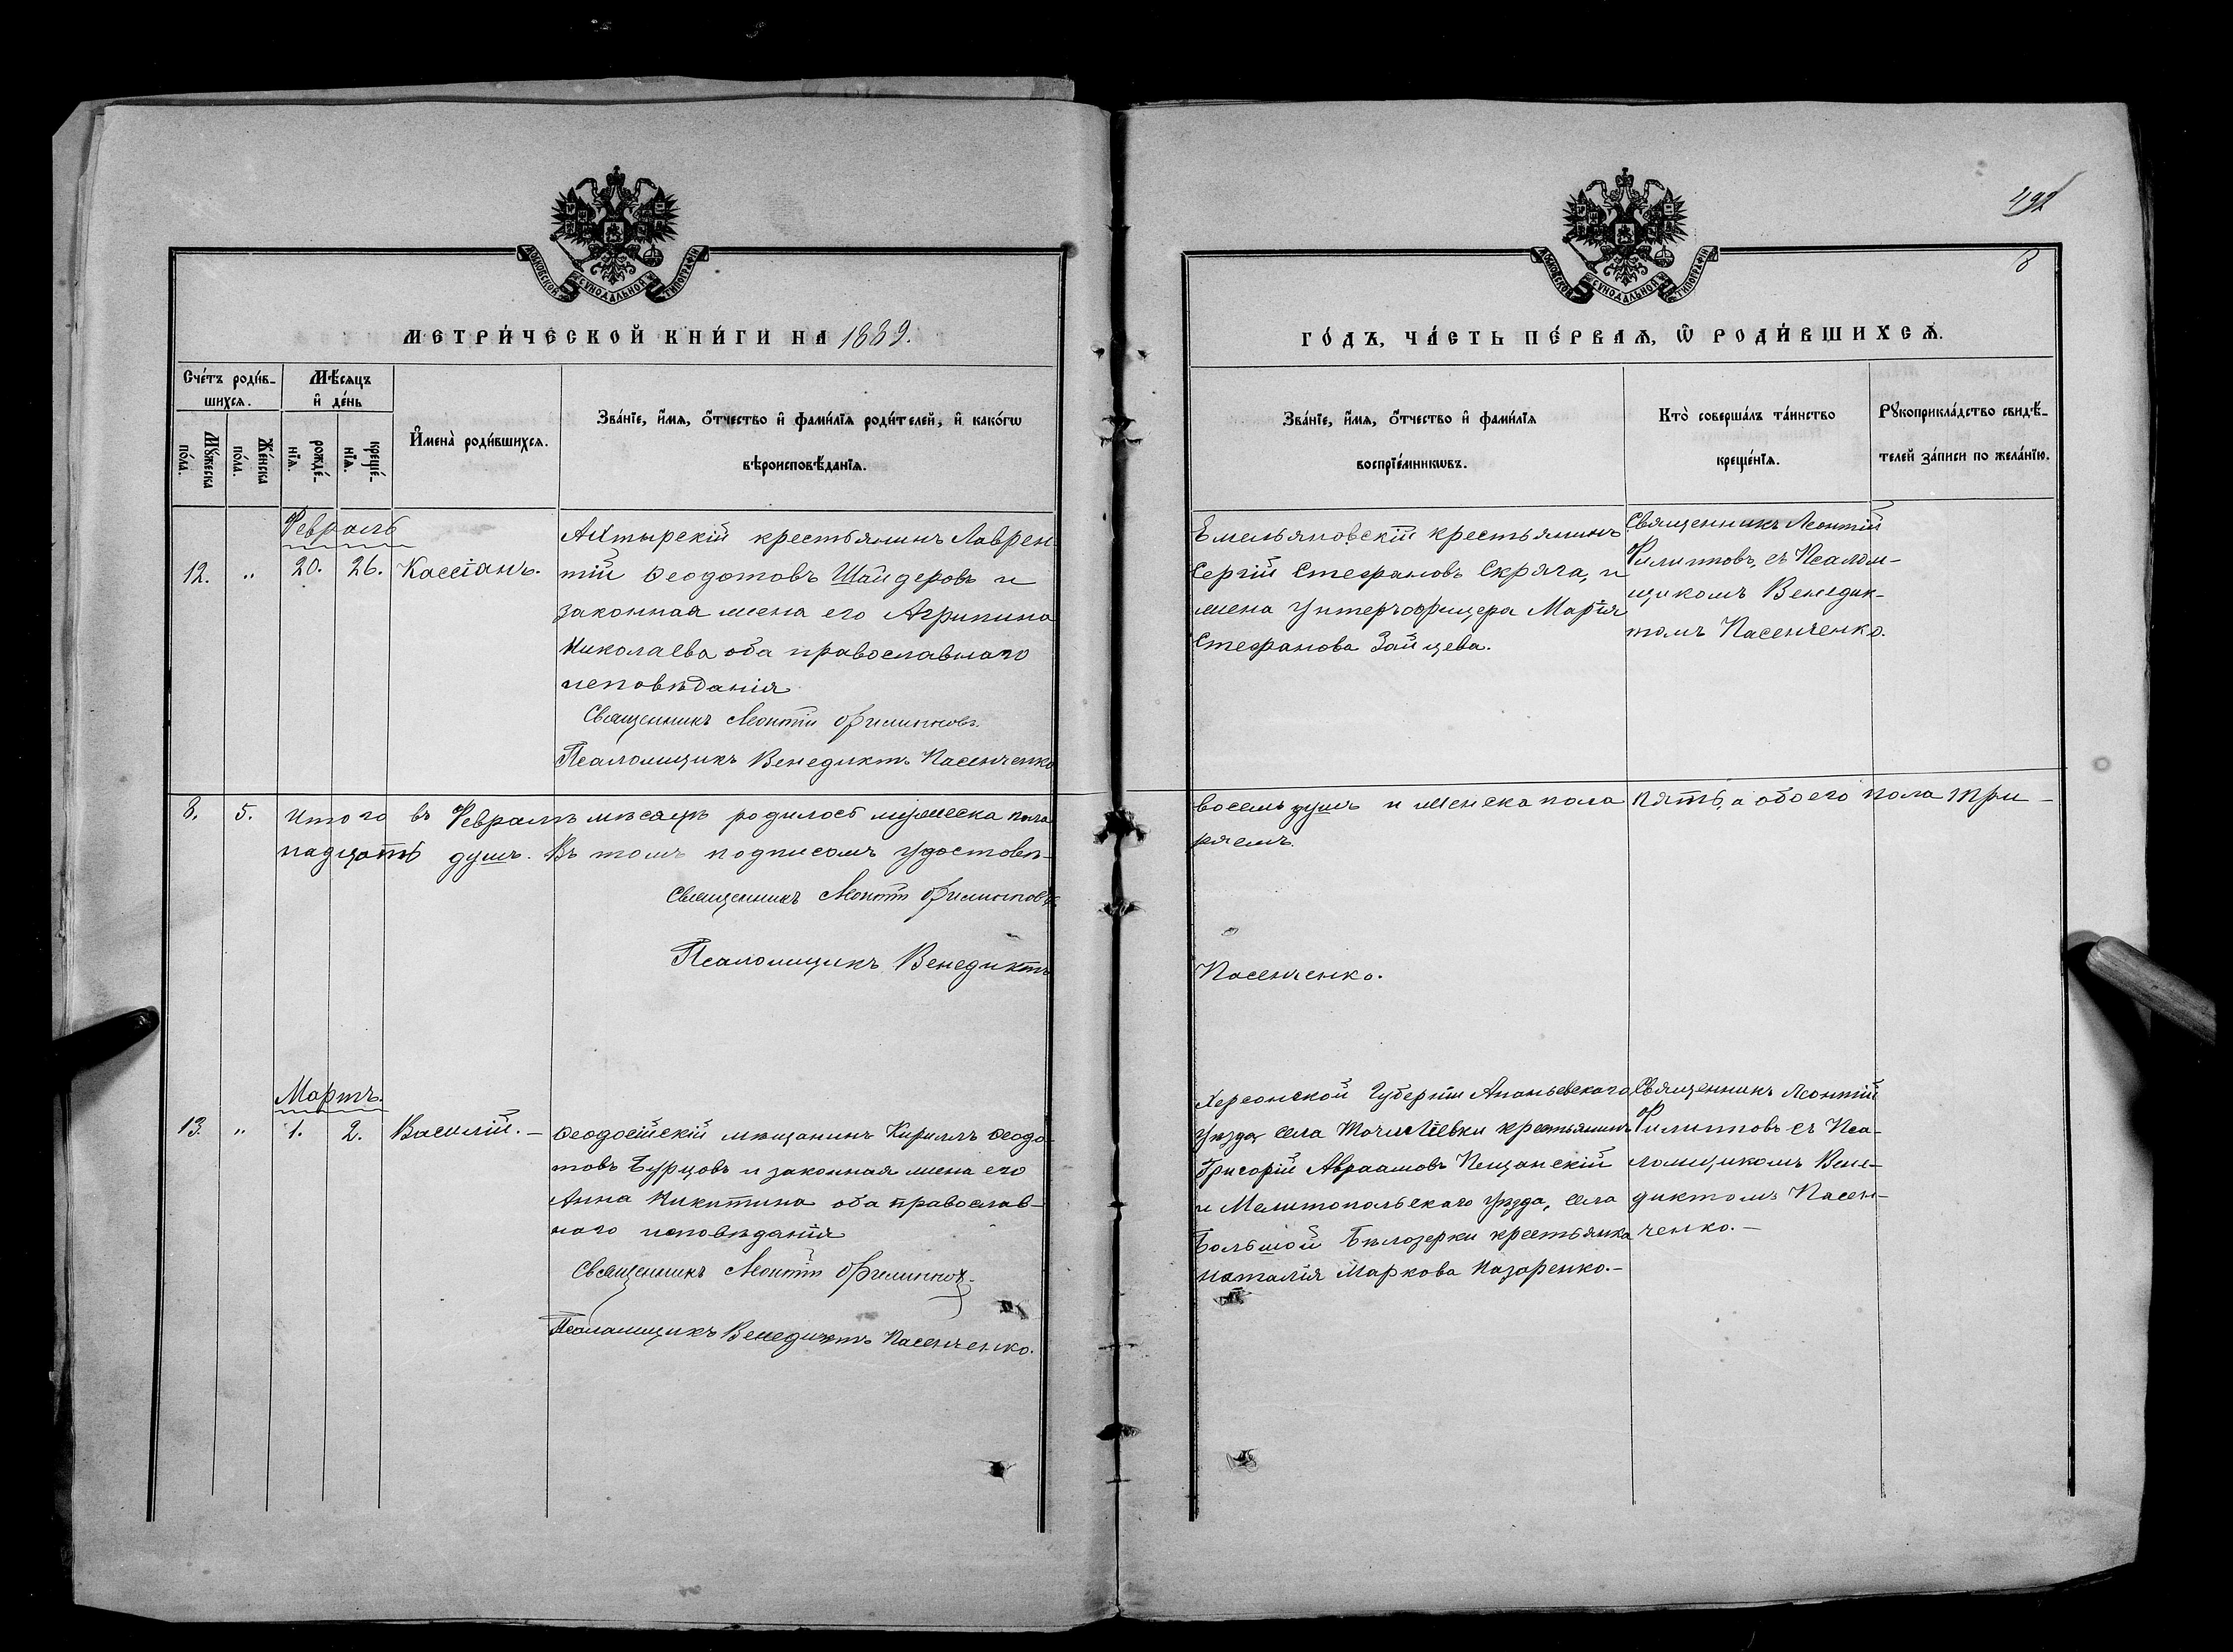 МОСКОВСКОЙ СѴНОДАЛЬНОЙ ТИПОГРАФІИ
МЕТРИ́ЧЕСКОЙ КНИ́ГИ НА 1889.
Сче́тъ роди́в-
шихсѧ.
Мѣ́сѧцъ
и҆ де́нь
Мꙋ́жеска
по́ла.
Же́нска
по́ла.
рожде́-
нїѧ.
креще́-
нїѧ.
И҆мена̀ роди́вшихсѧ.
Зва́нїе, и҆́мѧ, ѻ҆́тчество и҆ фами́лїѧ роди́телей, и҆ како́гѡ
вѣроисповѣ́данїѧ.
Февраль
12. " 20. 26. Кассіанъ.
Ахтырскій крестьянинъ Лаврен-
тій Ѳеодотовъ Шайдеровъ и
законная жена его Агрипина
Николаева оба православнаго
исповѣданія
Священникъ Леонтій Филипповъ.
Псаломщикъ Венедиктъ Пасенченко
8. 5. Итого въ Февралѣ мѣсяцѣ родилось мужеска пола
надцать душъ. Въ томъ подписомъ удостовѣ-
Священникъ Леонтій Филипповъ.
Псаломщикъ Венедиктъ
Мартъ.
13. " 1. 2. Василій. –
Ѳеодосійскій мѣщанинъ Кириллъ Ѳеодо-
товъ Бурцовъ и законная жена его
Анна Никитина оба православ-
наго исповѣданія
Священникъ Леонтій Филипповъ.
Псаломщикъ Венедиктъ Пасенченко.
492
8
МОСКОВСКОЙ СѴНОДАЛЬНОЙ ТИПОГРАФІИ
ГО́ДЪ, ЧА́СТЬ ПЕ́РВАѦ, Ѡ҆ РОДИ́ВШИХСѦ.
Зва́нїе, и҆́мѧ, ѻ҆́тчество и҆ фами́лїѧ
воспрїе́мникѡвъ.
Кто̀ соверша́лъ та́инство
креще́нїѧ.
Рꙋкоприкла́дство свидѣ́-
телей за́писи по жела́нїю.
Емельяновскій крестьянинъ
Сергій Стефановъ Скряга, и
жена Унтеръофицера Марія
Стефанова Зайцева.
Священникъ Леонтій
Филипповъ, съ Псалом-
щикомъ Венедик-
томъ Пасенченко.
восемь душъ и женска пола пять, а обоего пола три-
ряемъ.
Пасенченко.
Херсонской Губерніи Ананьевскаго
Уѣзда села Точиліевки крестьянинъ
Григорій Авраамовъ Пещанскій
и Мелитопольскаго Уѣзда, села
Большой Бѣлозерки крестьянка
Наталія Маркова Назаренко. –
Священникъ Леонтій
Филипповъ съ Пса-
ломщикомъ Вене-
диктомъ Пасен-
ченко. –